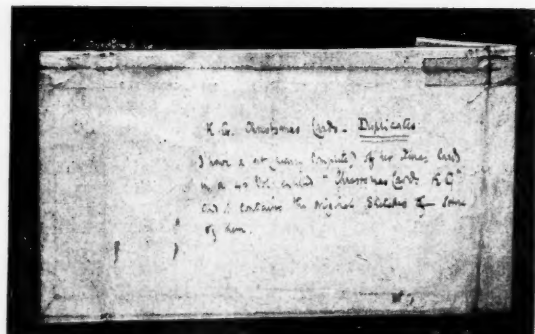 K.G. Christmas Cards - Duplicates
I have a set (nearly complete) of her Xmas Cards
in a 4to Vol. entitled "Christmas Cards K G"
and it contains the original Sketches of some
of them.